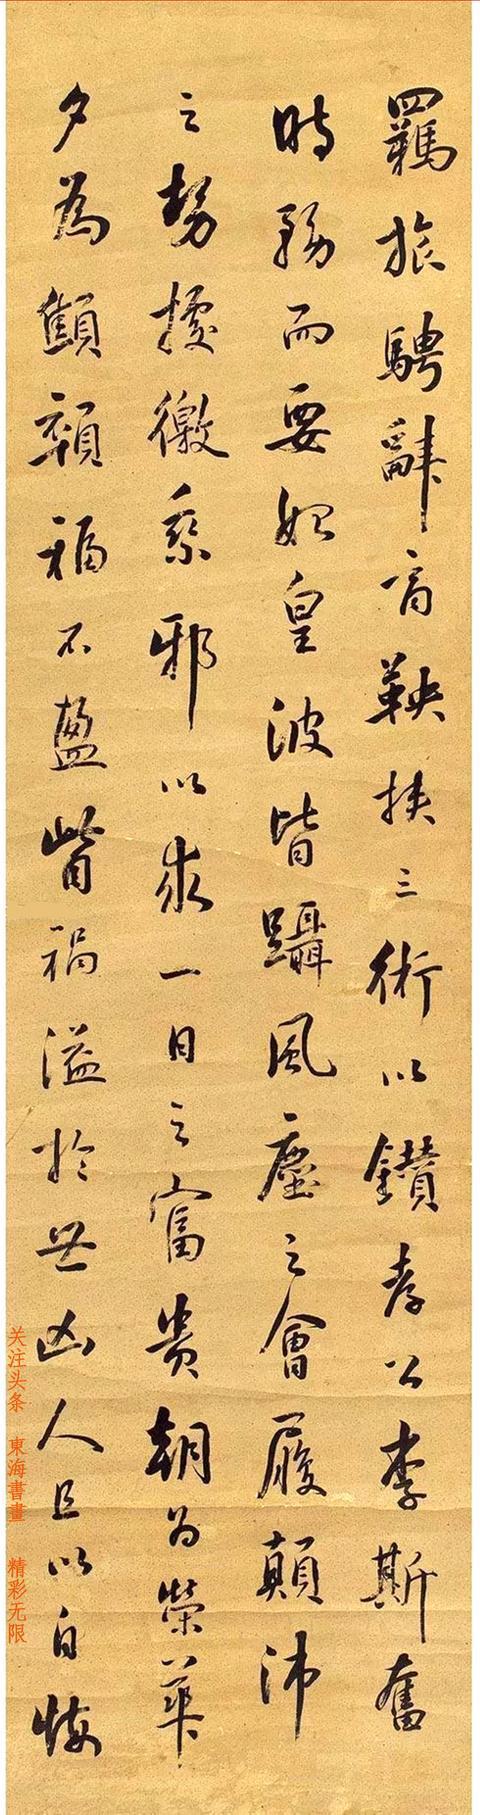 羈旅騁辭商鞅挾三術以鑽孝公李斯奮
時務而要始皇波皆躡風塵之會履顛沛
之勢據徼乘邪以求一日之富貴朝為榮華
夕為顦顇福不盈眥禍溢於世凶人且以自悔
关注头条 東海書畫 精彩无限